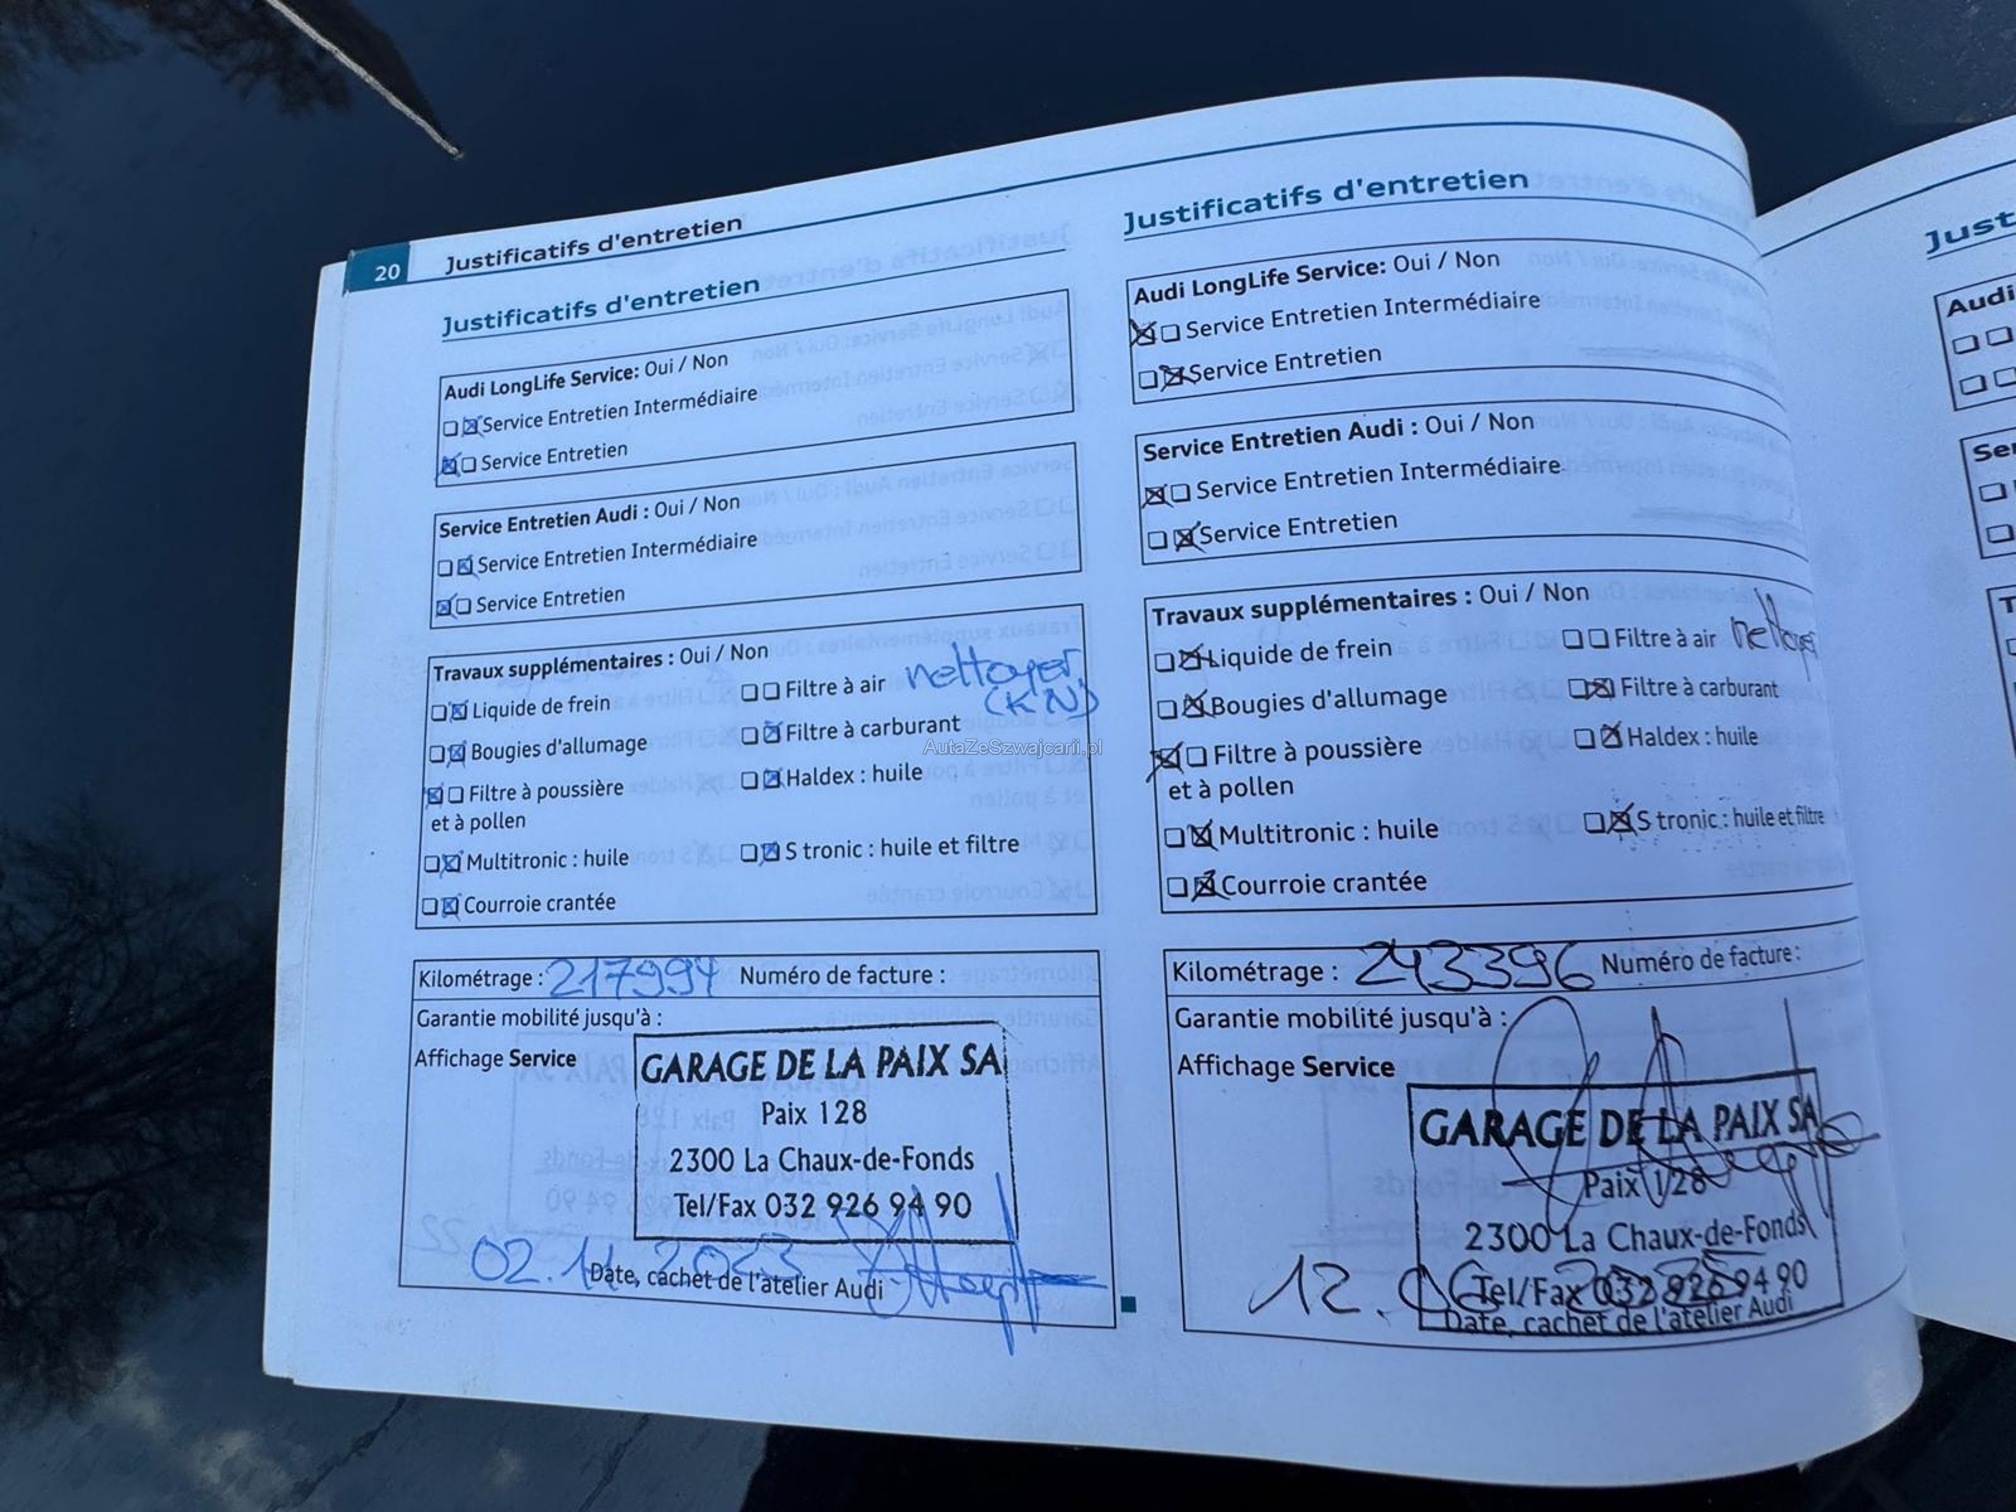 20 Justificatifs d'entretien
Justificatifs d'entretien
Audi LongLife Service: Oui / Non
Service Entretien Intermédiaire
Service Entretien
Service Entretien Audi : Oui / Non
Service Entretien Intermédiaire
Service Entretien
Travaux supplémentaires : Oui / Non
Liquide de frein
Filtre à air nettoyer
(KN)
Bougies d'allumage
Filtre à carburant
AutaZeSzwajcarii.pl
Filtre à poussière
et à pollen
Haldex : huile
Multitronic : huile
S tronic : huile et filtre
Courroie crantée
Kilométrage : 217994 Numéro de facture :
Garantie mobilité jusqu'à :
Affichage Service
GARAGE DE LA PAIX SA
Paix 128
2300 La Chaux-de-Fonds
Tel/Fax 032 926 94 90
02.11.2023
Date, cachet de l'atelier Audi
Justificatifs d'entretien
Audi LongLife Service: Oui / Non
Service Entretien Intermédiaire
Service Entretien
Service Entretien Audi : Oui / Non
Service Entretien Intermédiaire
Service Entretien
Travaux supplémentaires : Oui / Non
Liquide de frein
Filtre à air nettoyer
Bougies d'allumage
Filtre à carburant
Filtre à poussière
et à pollen
Haldex : huile
Multitronic : huile
S tronic : huile et filtre
Courroie crantée
Kilométrage : 243396 Numéro de facture :
Garantie mobilité jusqu'à :
Affichage Service
GARAGE DE LA PAIX SA
Paix 128
2300 La Chaux-de-Fonds
Tel/Fax 032 926 94 90
12.06
Date, cachet de l'atelier Audi
Just
Audi
Ser
T